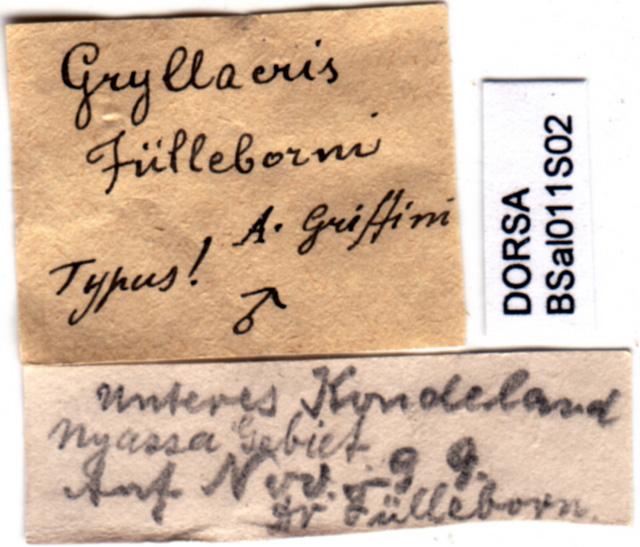 Gryllacris
Fülleborni
A. Griffini
Typus! ♂
DORSA
BSal011S02
unteres Kondeland
Nyassa Gebiet
Anf. Nov. 99.
Dr Fülleborn.